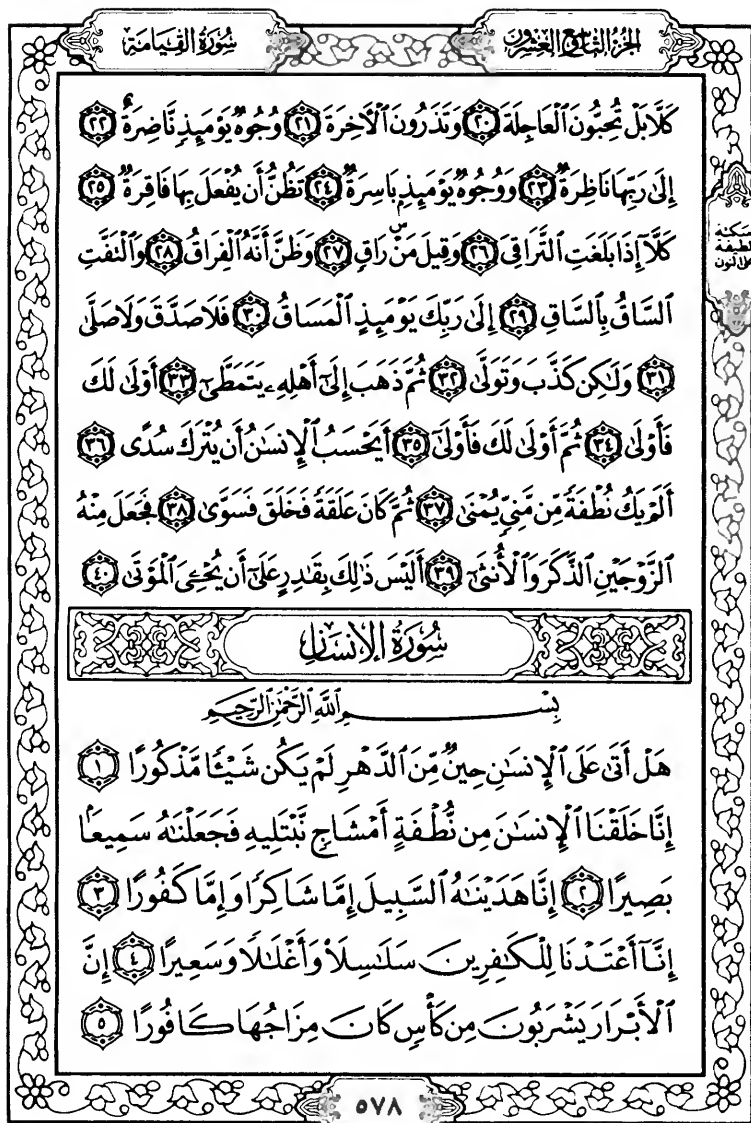 الجزء التاسع والعشرون
سورة القيامة
كَلَّا بَلْ تُحِبُّونَ ٱلْعَاجِلَةَ ٢٠ وَتَذَرُونَ ٱلْأٓخِرَةَ ٢١ وُجُوهٌ يَوْمَئِذٍ نَّاضِرَةٌ ٢٢
إِلَىٰ رَبِّهَا نَاظِرَةٌ ٢٣ وَوُجُوهٌ يَوْمَئِذٍۭ بَاسِرَةٌ ٢٤ تَظُنُّ أَن يُفْعَلَ بِهَا فَاقِرَةٌ ٢٥
كَلَّآ إِذَا بَلَغَتِ ٱلتَّرَاقِيَ ٢٦ وَقِيلَ مَنْۜ رَاقٍ ٢٧ وَظَنَّ أَنَّهُ ٱلْفِرَاقُ ٢٨ وَٱلْتَفَّتِ
ٱلسَّاقُ بِٱلسَّاقِ ٢٩ إِلَىٰ رَبِّكَ يَوْمَئِذٍ ٱلْمَسَاقُ ٣٠ فَلَا صَدَّقَ وَلَا صَلَّىٰ
٣١ وَلَٰكِن كَذَّبَ وَتَوَلَّىٰ ٣٢ ثُمَّ ذَهَبَ إِلَىٰٓ أَهْلِهِۦ يَتَمَطَّىٰٓ ٣٣ أَوْلَىٰ لَكَ
فَأَوْلَىٰ ٣٤ ثُمَّ أَوْلَىٰ لَكَ فَأَوْلَىٰٓ ٣٥ أَيَحْسَبُ ٱلْإِنسَٰنُ أَن يُتْرَكَ سُدًى ٣٦
أَلَمْ يَكُ نُطْفَةً مِّن مَّنِىٍّ يُمْنَىٰ ٣٧ ثُمَّ كَانَ عَلَقَةً فَخَلَقَ فَسَوَّىٰ ٣٨ فَجَعَلَ مِنْهُ
ٱلزَّوْجَيْنِ ٱلذَّكَرَ وَٱلْأُنثَىٰٓ ٣٩ أَلَيْسَ ذَٰلِكَ بِقَٰدِرٍ عَلَىٰٓ أَن يُحْـِۧىَ ٱلْمَوْتَىٰ ٤٠
سكتة
لطيفة
على النون
سورة الإنسان
بِسْمِ اللَّهِ الرَّحْمَٰنِ الرَّحِيمِ
هَلْ أَتَىٰ عَلَى ٱلْإِنسَٰنِ حِينٌ مِّنَ ٱلدَّهْرِ لَمْ يَكُن شَيْـًٔا مَّذْكُورًا ١
إِنَّا خَلَقْنَا ٱلْإِنسَٰنَ مِن نُّطْفَةٍ أَمْشَاجٍ نَّبْتَلِيهِ فَجَعَلْنَٰهُ سَمِيعًۢا
بَصِيرًا ٢ إِنَّا هَدَيْنَٰهُ ٱلسَّبِيلَ إِمَّا شَاكِرًا وَإِمَّا كَفُورًا ٣
إِنَّآ أَعْتَدْنَا لِلْكَٰفِرِينَ سَلَٰسِلَا۟ وَأَغْلَٰلًا وَسَعِيرًا ٤ إِنَّ
ٱلْأَبْرَارَ يَشْرَبُونَ مِن كَأْسٍ كَانَ مِزَاجُهَا كَافُورًا ٥
٥٧٨